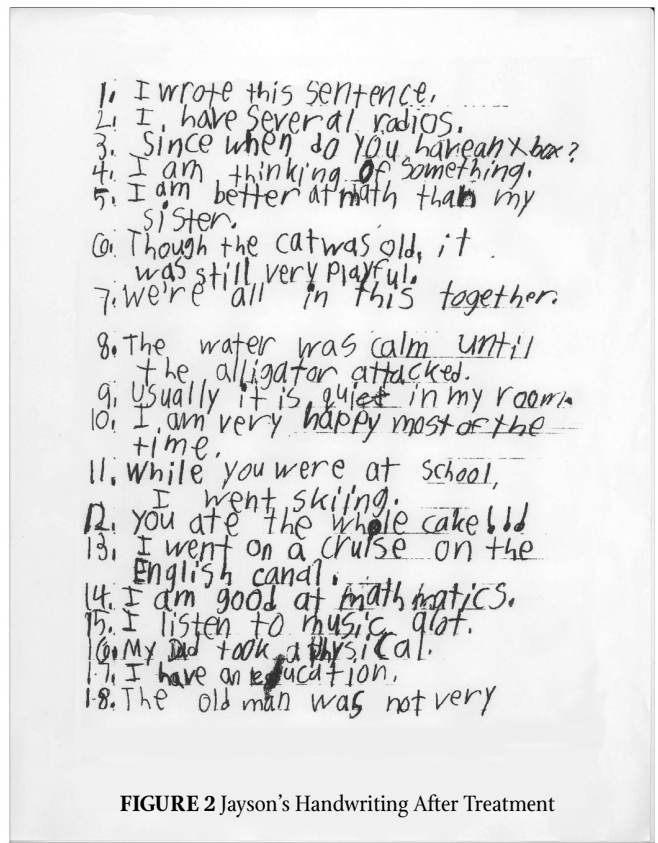 1. I wrote this sentence.
2. I have several radios.
3. Since when do you have an X box?
4. I am thinking of something.
5. I am better at math than my
sister.
6. Though the cat was old, it
was still very playful.
7. We're all in this together.
8. The water was calm until
the alligator attacked.
9. Usually it is quiet in my room.
10. I am very happy most of the
time.
11. While you were at school,
I went skiing.
12. you ate the whole cake!!!
13. I went on a cruise on the
English canal.
14. I am good at mathmatics.
15. I listen to music alot.
16. My Dad took a physical.
17. I have an education.
18. The old man was not very
FIGURE 2 Jayson's Handwriting After Treatment